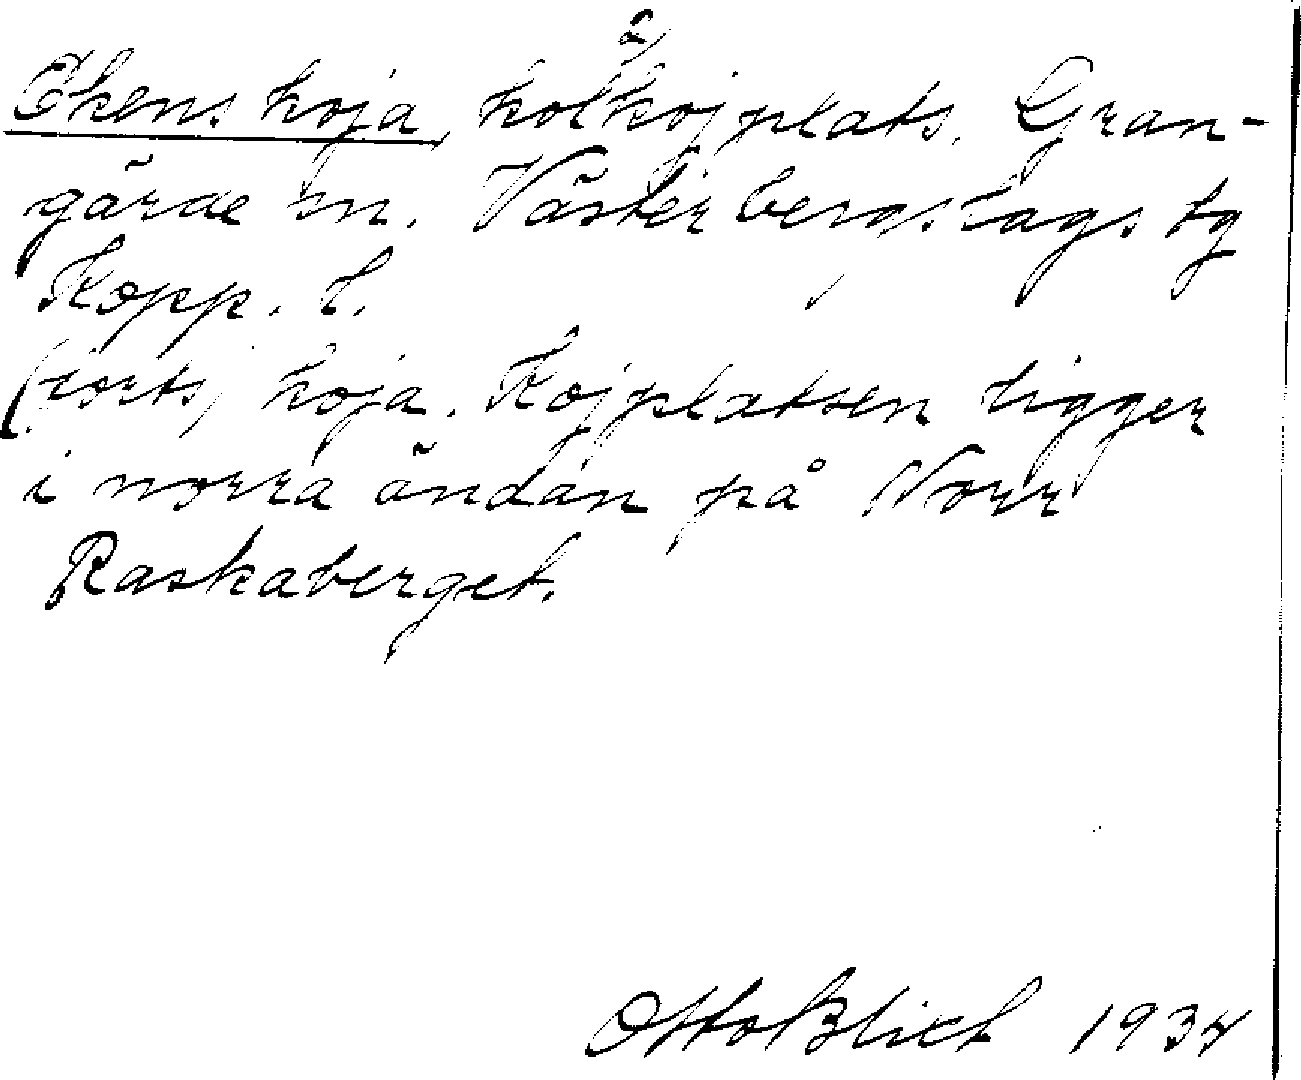 2
Ekens koja, kolkojplats. Gran-
gärde sn. Västerbergslags tg
Kopp. l.
(forts) koja. Kojplatsen ligger
i norra ändan på Norr
Raskaberget.
Otto Blixt 1934